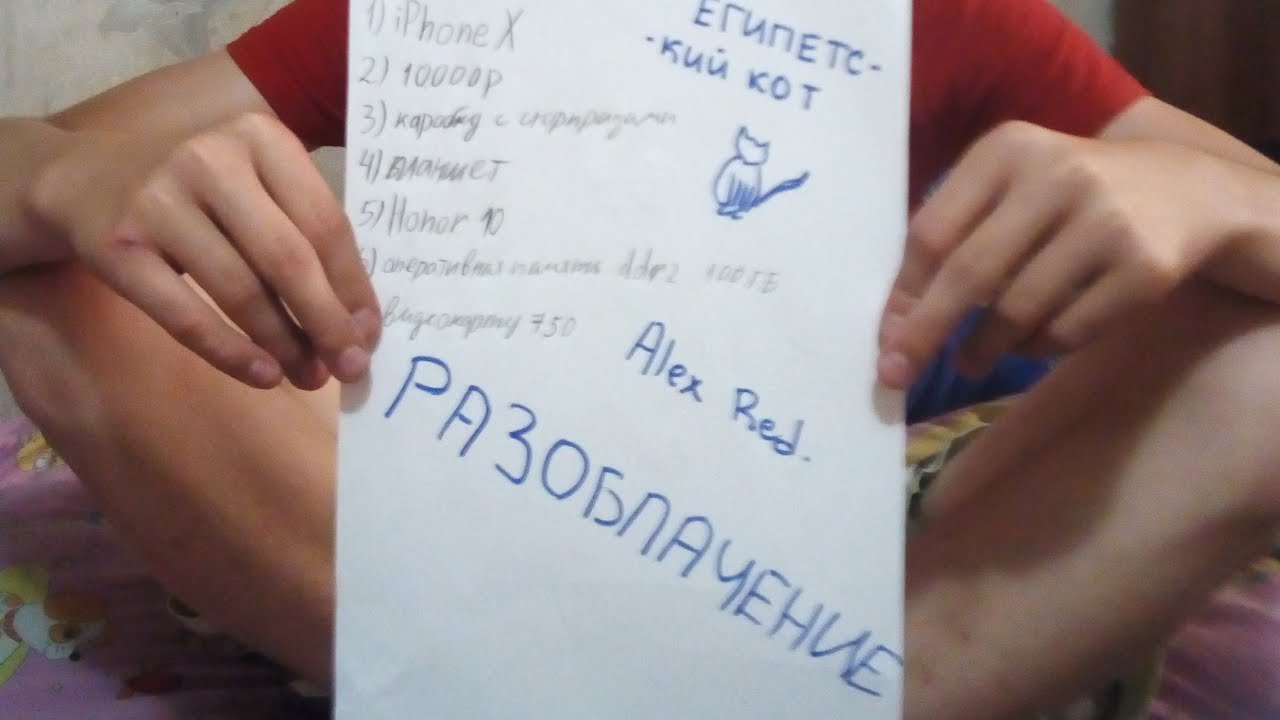 1) iPhone X
2) 10000р
3) каробку с сюрпризами
4) планшет
5) Honor 10
6) оперативная память ddr2 100 ГБ
видеокарту 750
ЕГИПЕТС-
-КИЙ КОТ
Alex Red.
РАЗОБЛАЧЕНИЕ